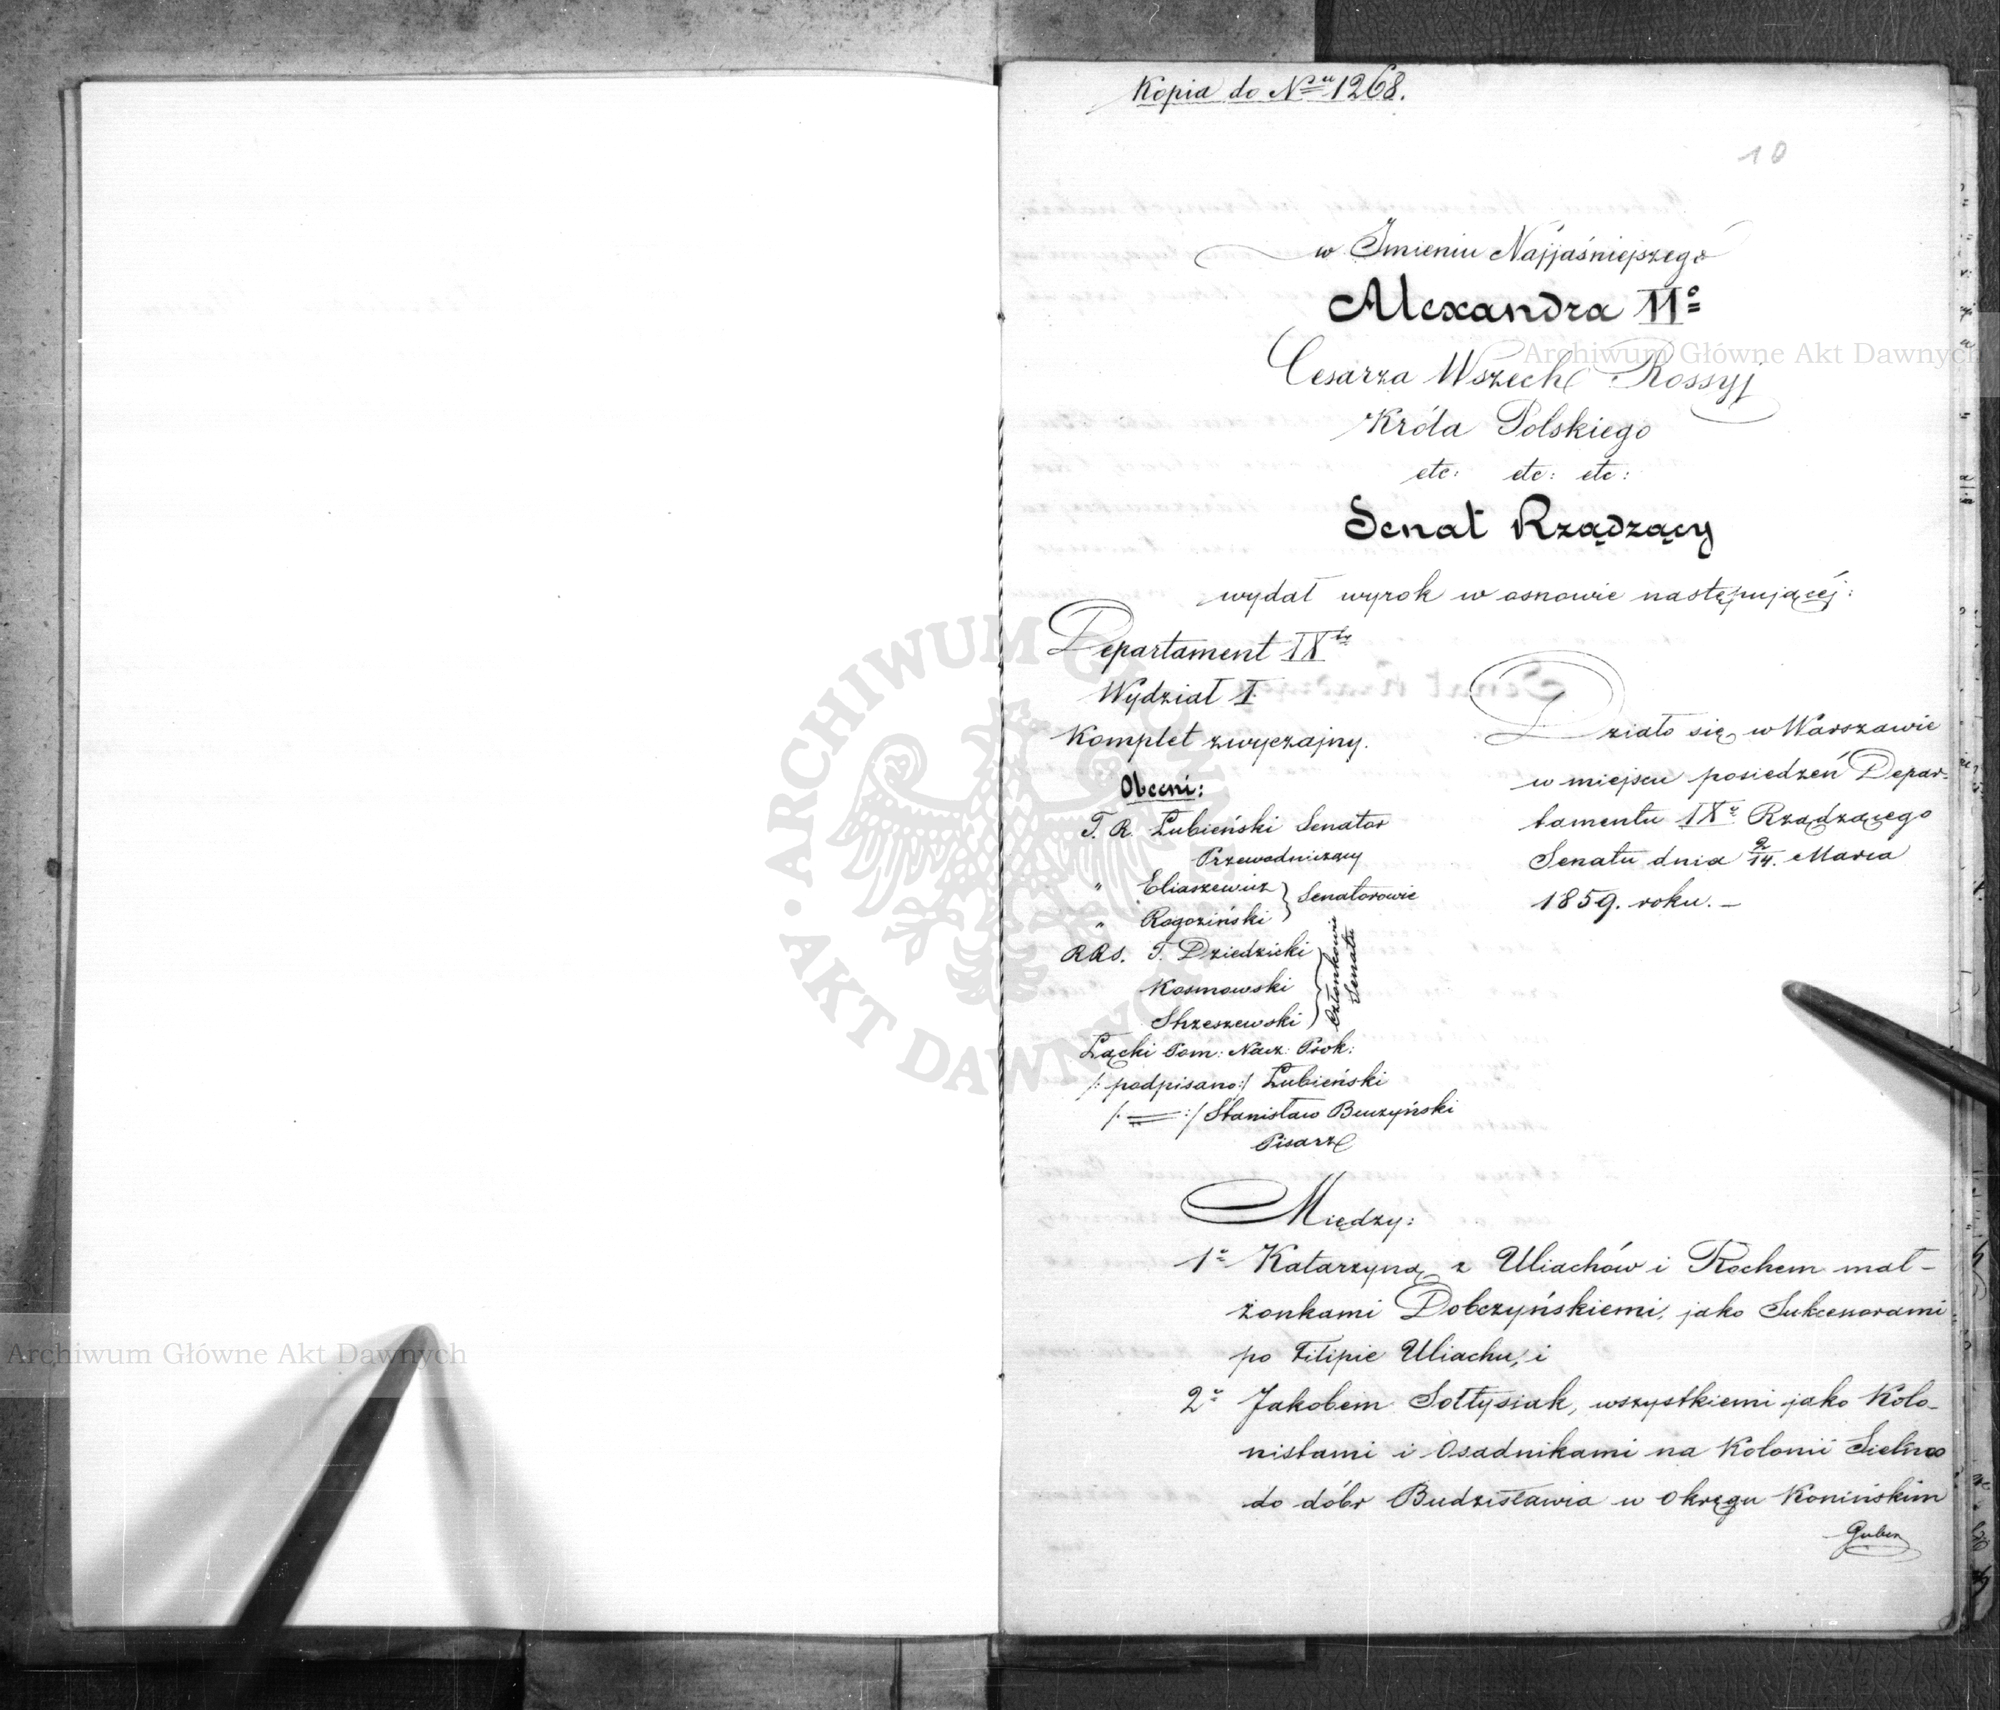 Kopia do Nru 1268.
10
w Imieniu Najjaśniejszego
Alexandra IIo
Cesarza Wszech Rossyj
Króla Polskiego
etc: etc: etc:
Senat Rządzący
wydał wyrok w osnowie następującéj:
Departament IXty
Wydział I.
Komplet zwyczajny.
Obecni:
T. R. Łubieński Senator
Przewodniczący
" Eliaszewicz
" Rogoziński
Senatorowie
RRS. T. Dziedzicki
Kosmowski
Strzeszewski
Członkowie
Senatu
Łącki Pom: Nacz: Prok:
/: podpisano:/ Łubieński
/: = :/ Stanisław Buczyński
Pisarz
Działo się w Warszawie
w miejscu posiedzeń Depar-
tamentu IXu Rządzącego
Senatu dnia 2/14. Marca
1859. roku. –
Między:
1o Katarzyną z Uliachów i Rochem mał-
żonkami Dobczyńskiemi, jako Sukcessorami
po Filipie Uliachu, i
2o Jakobem Sołtysiak, wszystkiemi jako Kolo-
nistami i Osadnikami na Kolonii
do dóbr Budzisławia w Okręgu Konińskim
Guber
Archiwum Główne Akt Dawnych
Archiwum Główne Akt Dawnych
ARCHIWUM GŁÓWNE AKT DAWNYCH